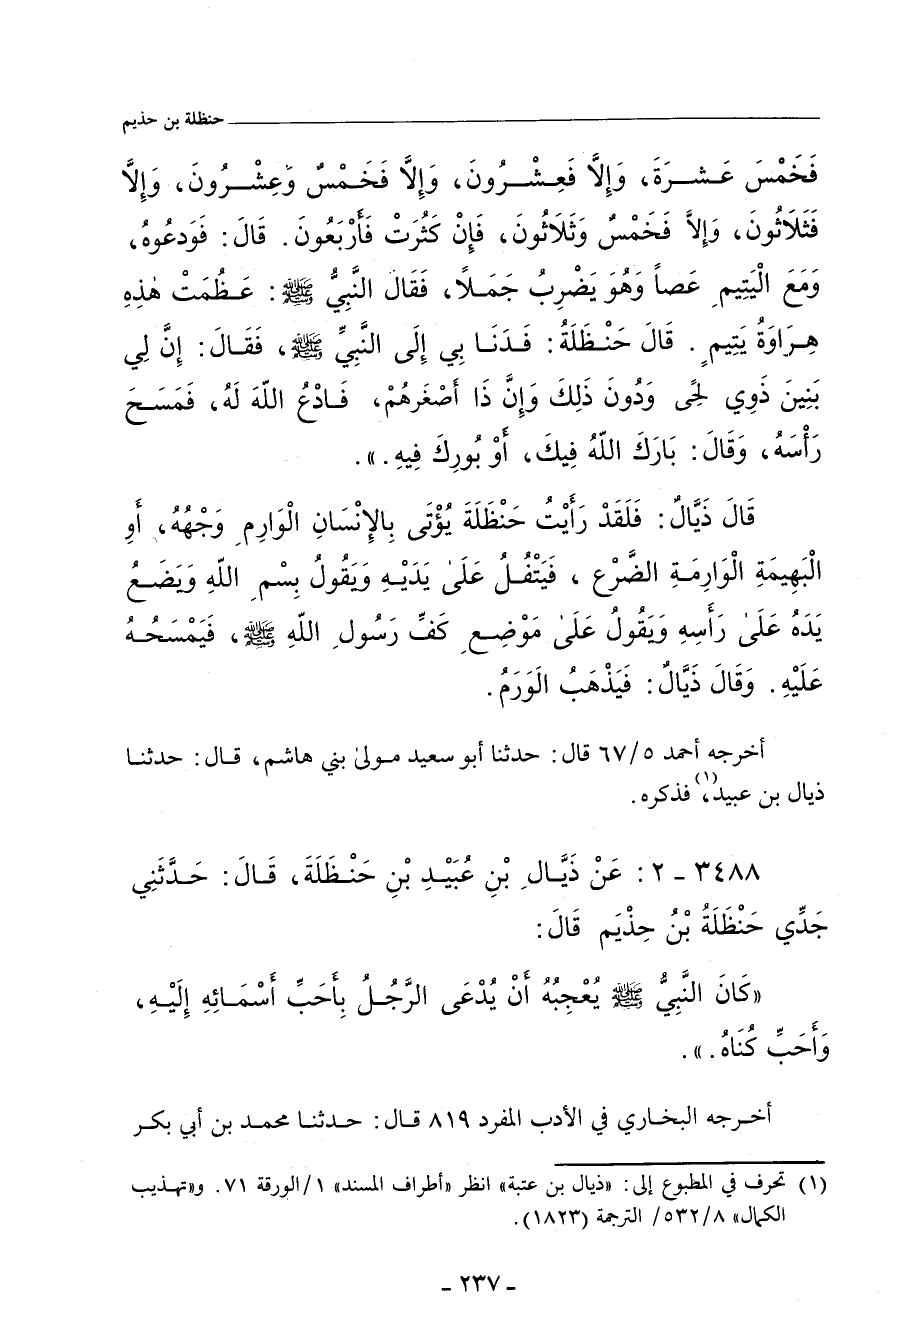 حنظلة بن حذيم
فَخَمْسَ عَشْرَةَ، وَإِلَّا فَعِشْرُونَ، وَإِلَّا فَخَمْسٌ وَعِشْرُونَ، وَإِلَّا
فَثَلَاثُونَ، وَإِلَّا فَخَمْسٌ وَثَلَاثُونَ، فَإِنْ كَثُرَتْ فَأَرْبَعُونَ. قَالَ: فَوَدعُوهُ،
وَمَعَ الْيَتِيمِ عَصاً وَهُوَ يَضْرِبُ جَمَلًا، فَقَالَ النَّبِيُّ ﷺ: عَظُمَتْ هٰذِهِ
هِرَاوَةُ يَتِيمٍ. قَالَ حَنْظَلَةُ: فَدَنَا بِي إِلَى النَّبِيِّ ﷺ، فَقَالَ: إِنَّ لِي
بَنِينَ ذَوِي لِحًى وَدُونَ ذَلِكَ وَإِنَّ ذَا أَصْغَرُهُمْ، فَادْعُ اللّهَ لَهُ، فَمَسَحَ
رَأْسَهُ، وَقَالَ: بَارَكَ اللّهُ فِيكَ، أَوْ بُورِكَ فِيهِ.».
قَالَ ذَيَّالٌ: فَلَقَدْ رَأَيْتُ حَنْظَلَةَ يُؤْتَى بِالإِنْسَانِ الْوَارِمِ وَجْهُهُ، أَوِ
الْبَهِيمَةِ الْوَارِمَةِ الضَّرْعِ، فَيَتْفُلُ عَلَىٰ يَدَيْهِ وَيَقُولُ بِسْمِ اللّهِ وَيَضَعُ
يَدَهُ عَلَىٰ رَأْسِهِ وَيَقُولُ عَلَىٰ مَوْضِعِ كَفِّ رَسُولِ اللّهِ ﷺ، فَيَمْسَحُهُ
عَلَيْهِ. وَقَالَ ذَيَّالٌ: فَيَذْهَبُ الوَرَمُ.
أخرجه أحمد ٦٧/٥ قال: حدثنا أبو سعيد مولىٰ بني هاشم، قال: حدثنا
ذيال بن عبيد(١)، فذكره.
٣٤٨٨ - ٢: عَنْ ذَيَّالِ بْنِ عُبَيْدِ بْنِ حَنْظَلَةَ، قَالَ: حَدَّثَنِي
جَدِّي حَنْظَلَةُ بْنُ حِذْيَم قَالَ:
«كَانَ النَّبِيُّ ﷺ يُعْجِبُهُ أَنْ يُدْعَى الرَّجُلُ بِأَحَبِّ أَسْمَائِهِ إِلَيْهِ،
وَأَحَبِّ كُنَاهُ.».
أخرجه البخاري في الأدب المفرد ٨١٩ قال: حدثنا محمد بن أبي بكر
(١) تحرف في المطبوع إلى: «ذيال بن عتبة» انظر «أطراف المسند» ١/الورقة ٧١. و«تهذيب
الكمال» ٥٣٢/٨/ الترجمة (١٨٢٣).
- ٢٣٧ -